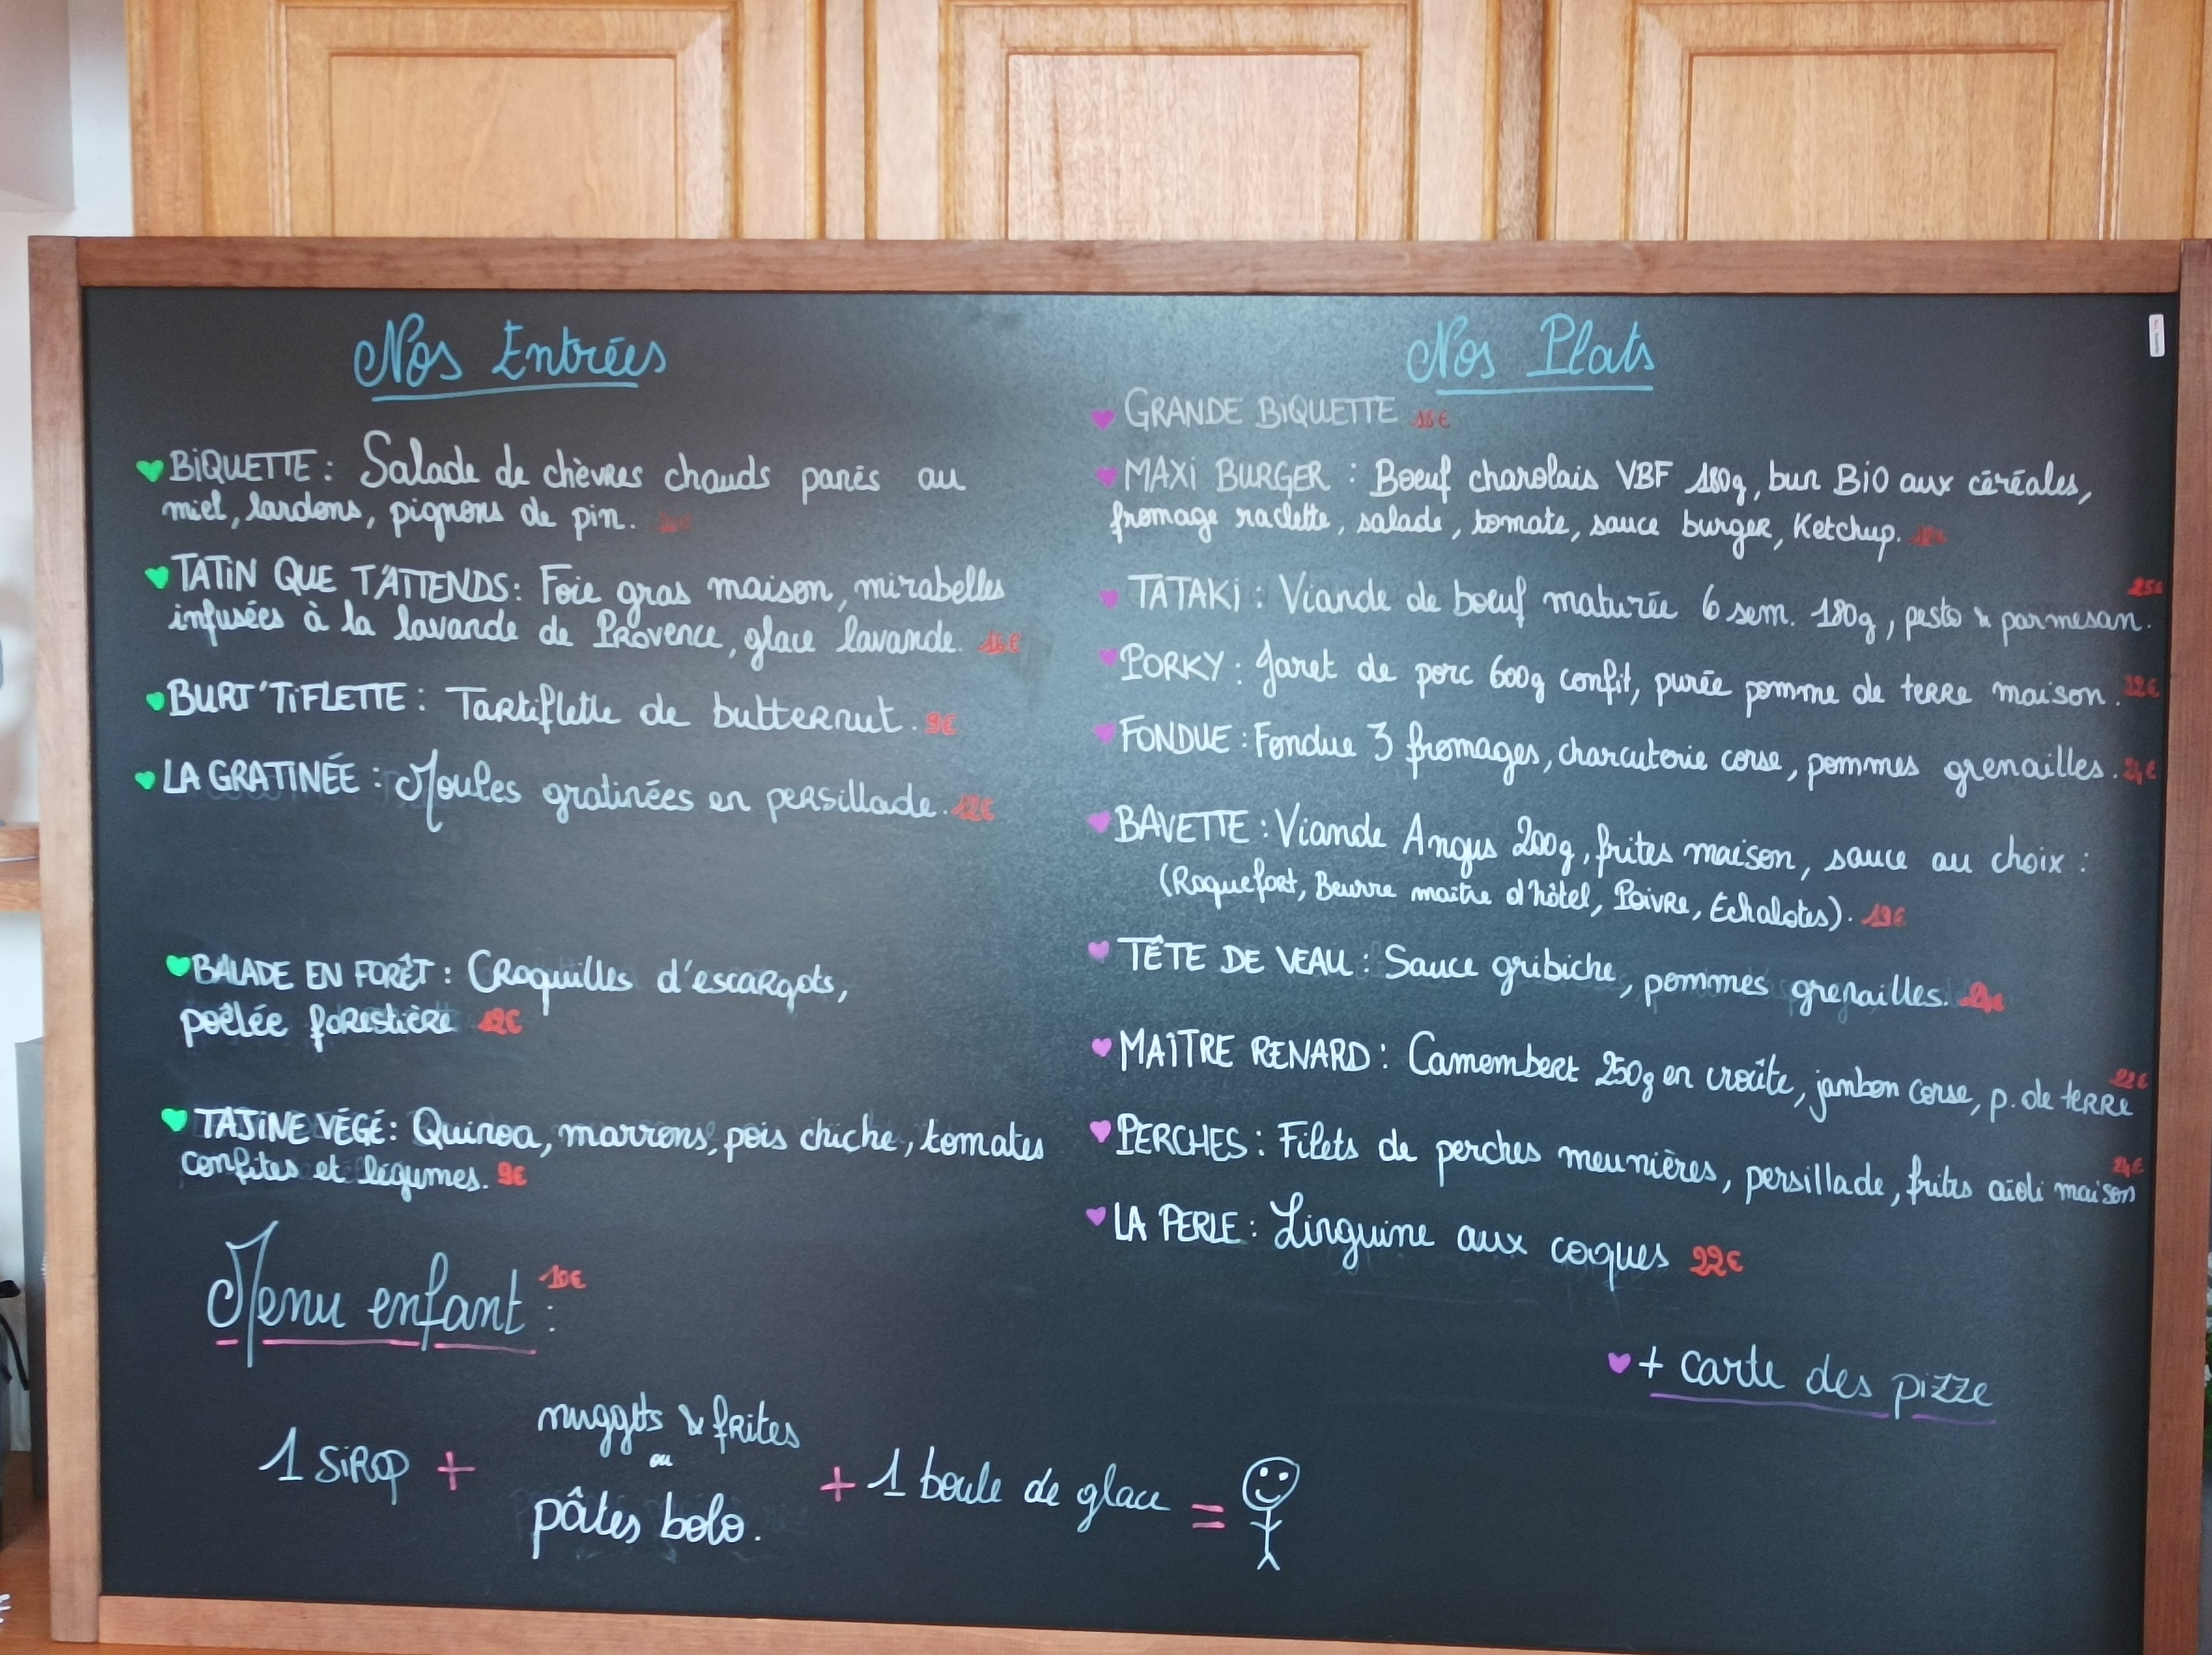 Nos Entrées
BiQUETTE : Salade de chèvres chauds panés au
miel, lardons, pignons de pin.
TATiN QUE T'ATTENDS : Foie gras maison, mirabelles
infusées à la lavande de PRovence, glace lavande. 16€
BURT'TiFLETTE : Tartiflette de butternut. 9€
LA GRATINÉE : Moules gratinées en persillade. 12€
BALADE EN FORÊT : Croquilles d'escargots,
poêlée forestière 12€
TAJINE VÉGÉ : Quinoa, marrons, pois chiche, tomates
confites et légumes. 9€
Menu enfant : 10€
1 SiROP + nuggets & frites
ou
pâtes bolo.
+ 1 boule de glace =
Nos Plats
GRANDE BiQUETTE
MAXi BURGER : Boeuf charolais VBF 180g, bun BiO aux céréales,
fromage raclette, salade, tomate, sauce burger, Ketchup.
25€
TATAKi : Viande de boeuf maturée 6 sem. 180g, pesto & parmesan.
PORKY : Jaret de porc 600g confit, purée pomme de terre maison. 22€
FONDUE : Fondue 3 fromages, charcuterie corse, pommes grenailles. 24€
BAVETTE : Viande Angus 200g, frites maison, sauce au choix :
(Roquefort, Beurre maître d'hôtel, Poivre, Echalotes). 19€
TÊTE DE VEAU : Sauce gribiche, pommes grenailles.
22€
MAÎTRE RENARD : Camembert 250g en croûte, jambon corse, p. de terre
24€
PERCHES : Filets de perches meunières, persillade, frites aïoli maison
LA PERLE : Linguine aux coques 22€
+ carte des pizze